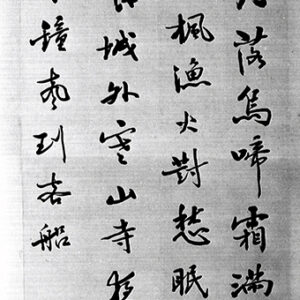 落烏啼霜滿
楓漁火對愁眠
城外寒山寺
鐘聲到客船